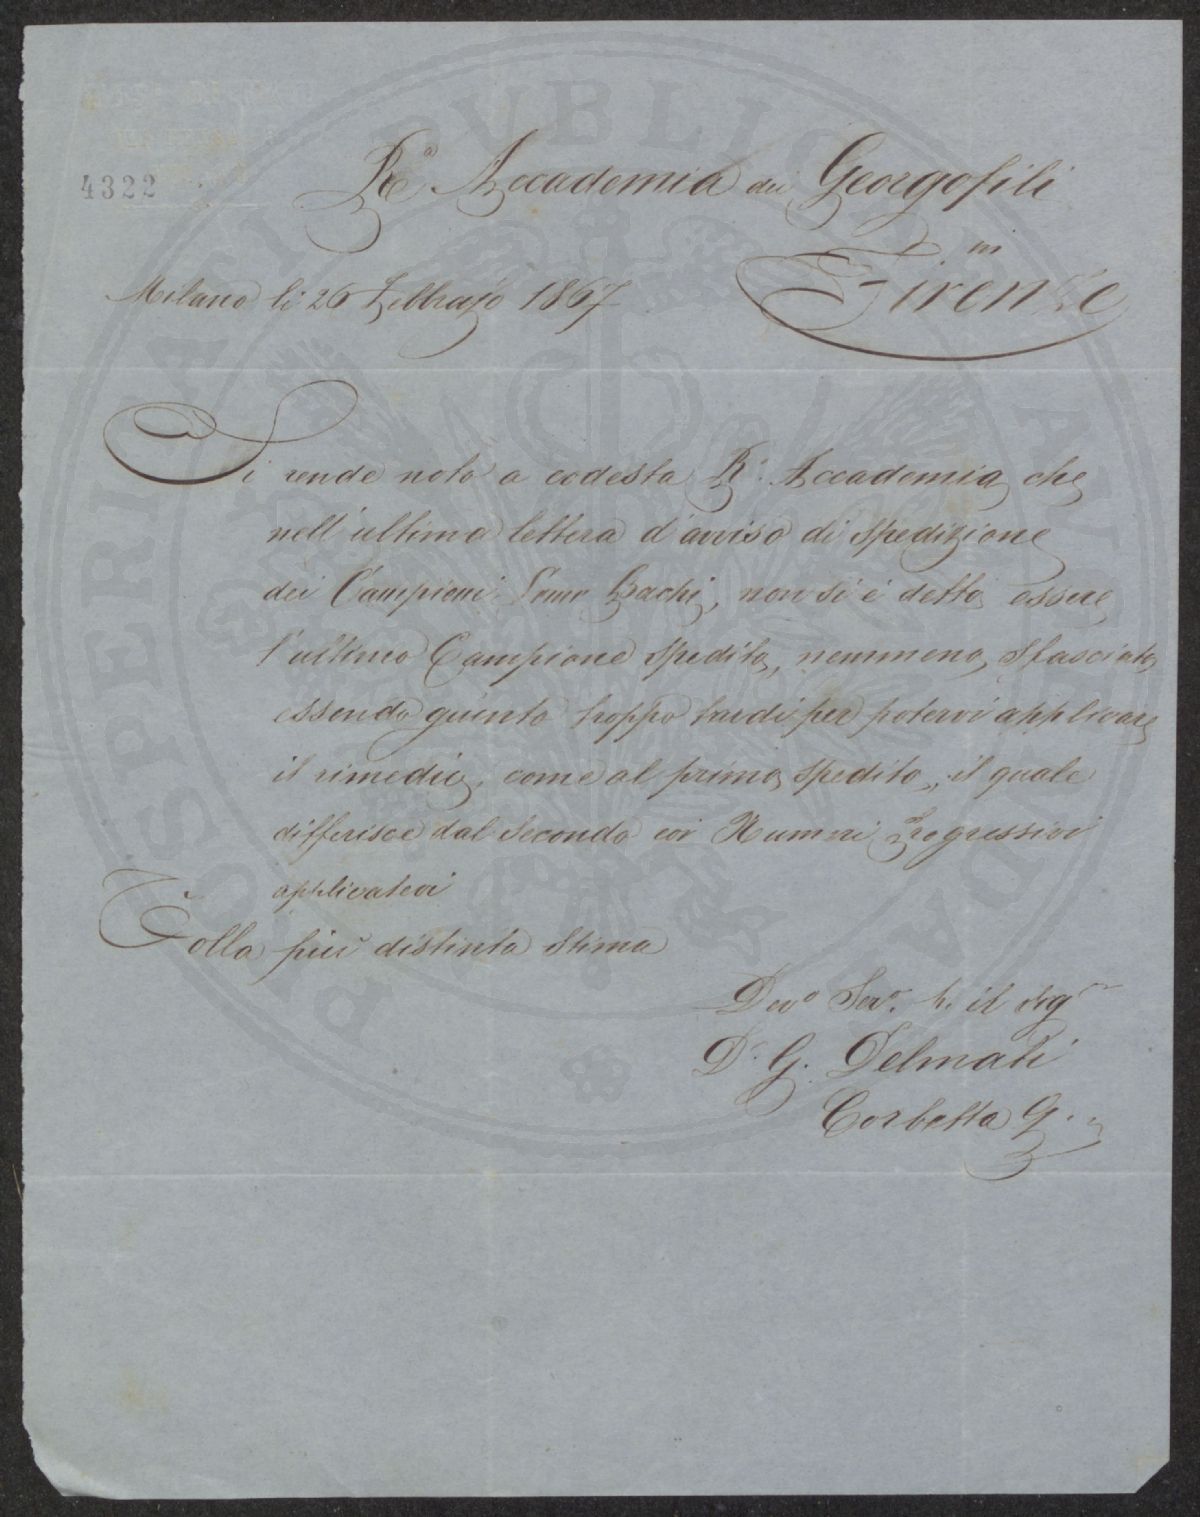 4322
Rª Accademia dei Georgofili
in
Firenze
Milano li 26 Febbrajo 1867
Si rende noto a codesta R. Accademia che
nell'ultima lettera d'avviso di spedizione
dei Campioni Seme Bachi, non si è detto essere
l'ultimo Campione spedito, nemmeno sfasciato
essendo giunto troppo tardi per potervi applicare
il rimedio, come al primo spedito, il quale
differisce dal Secondo coi Numeri Progressivi
applicatevi
Colla più distinta Stima
Devº Serv. p. il Sigr
Dr. G. Delmati
Corbetta G.
PROSPERITATI PVBLICAE AVGENDAE